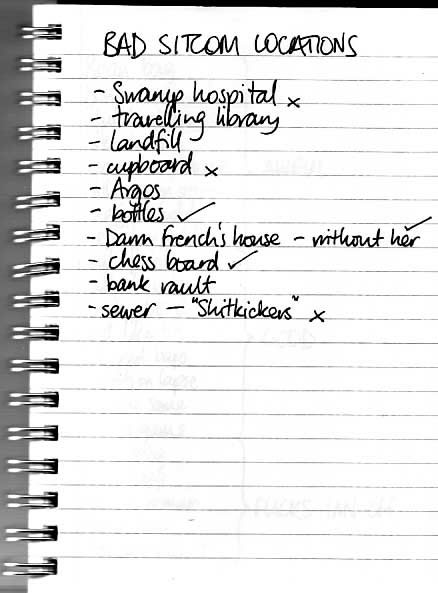 BAD SITCOM LOCATIONS
- Swamp hospital ×
- travelling library
- landfill
- cupboard ×
- Argos
- bottles ✓
- Dawn French's house - without her ✓
- chess board ✓
- bank vault
- sewer - "Shitkickers" ×